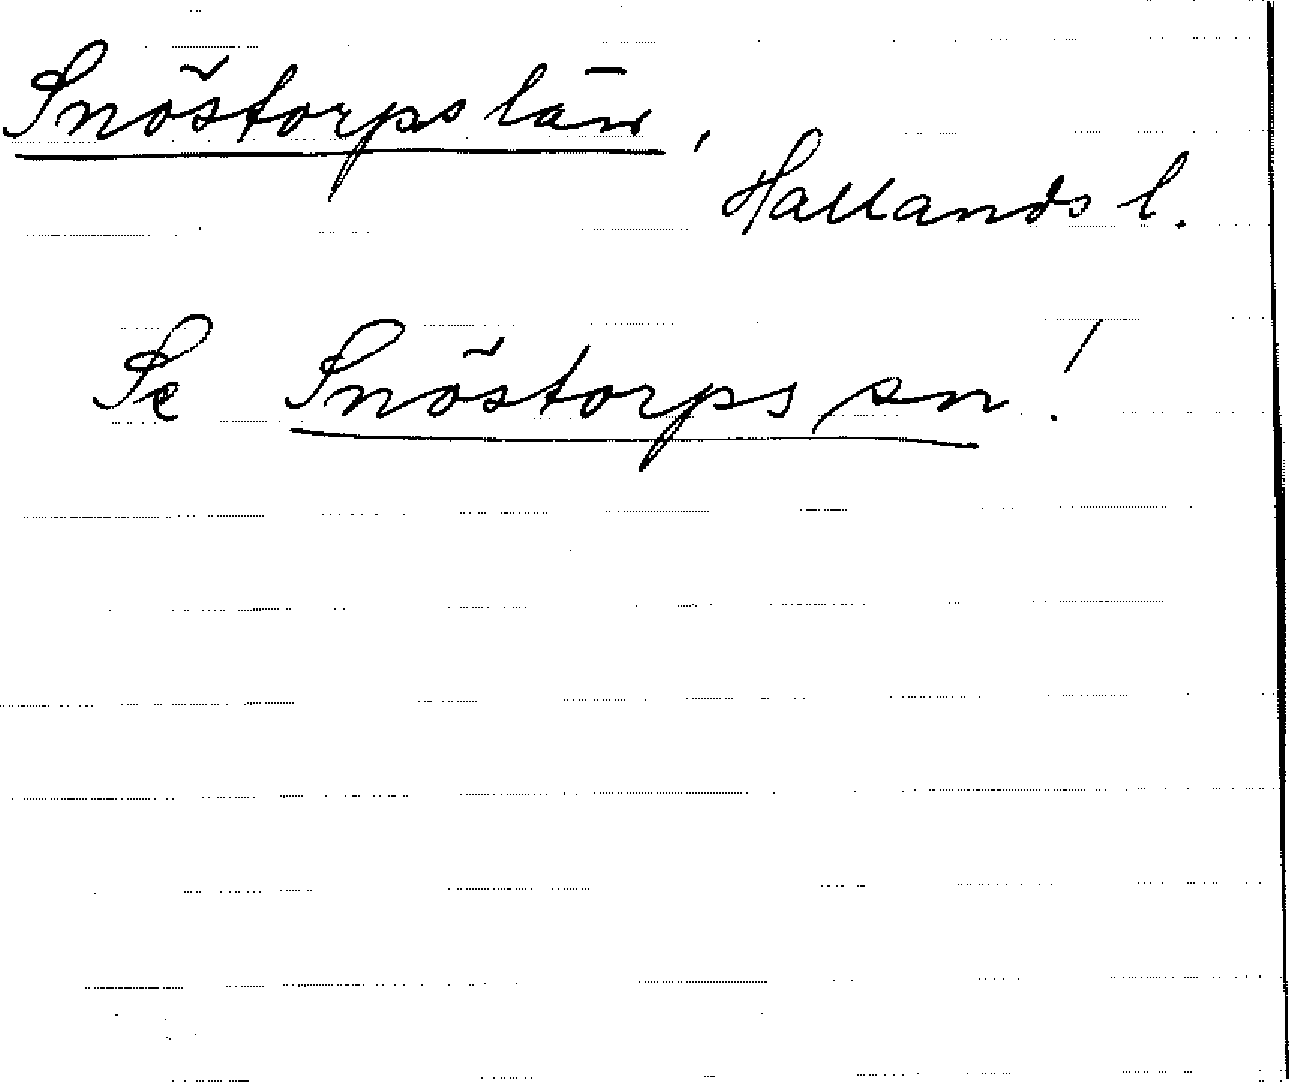 Snöstorps län,
Hallands l.
Se Snöstorps sn!